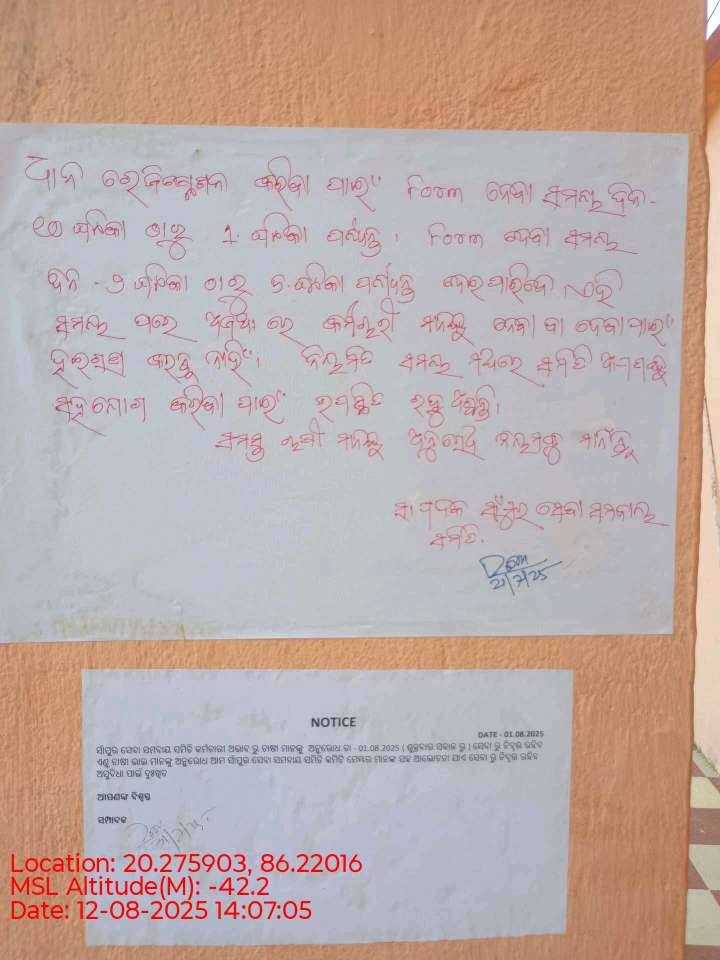 ଧାନ ରେଜିଷ୍ଟ୍ରେଶନ କରିବା ପାଇଁ Form ଦେବା ସମୟ ଦିନ -
୧୦ ଘଟିକା ଠାରୁ 1. ଘଟିକା ପର୍ଯ୍ୟନ୍ତ । Form ଦେବା ସମୟ
ଦିନ - ୨ ଘଟିକା ଠାରୁ ୫. ଘଟିକା ପର୍ଯ୍ୟନ୍ତ ଦେଇପାରିବେ ଏହି
ସମୟ ପରେ ଅଯଥା ରେ କର୍ମଚାରୀ ମାନଙ୍କୁ ଦେବା ବା ନେବା ପାଇଁ
ହଇରାଣ କରନ୍ତୁ ନାହିଁ । ନିୟମିତ ସମୟ ମଧ୍ୟରେ ସମିତି
ସହଯୋଗ କରିବା ପାଇଁ ଉପସ୍ଥିତ ରହୁଅଛନ୍ତି ।
ସମସ୍ତ ଚାଷୀ ମାନଙ୍କୁ ଅନୁରୋଧ ନିୟମକୁ ମାନନ୍ତୁ
ସମ୍ପାଦକ ସାଁପୁର ସେବା ସମବାୟ
ସମିତି.
21/7/25
NOTICE
DATE - 01.08.2025
ସାଁପୁର ସେବା ସମବାୟ ସମିତି କର୍ମଚାରୀ ଅଭାବ ରୁ ଚାଷୀ ମାନଙ୍କୁ ଅନୁରୋଧ ତା - 01.08.2025 ( ଶୁକ୍ରବାର ସକାଳ ରୁ ) ସେବା ରୁ ନିବୃତ୍ତ ରହିବ
ଏଣୁ ଚାଷୀ ଭାଇ ମାନଙ୍କୁ ଅନୁରୋଧ ଆମ ସାଁପୁର ସେବା ସମବାୟ ସମିତି କମିଟି ମେମ୍ବର ମାନଙ୍କ ସହ ଆଲୋଚନା ଯାଏ ସେବା ରୁ ନିବୃତ୍ତ ରହିବ
ଅସୁବିଧା ପାଇଁ ଦୁଃଖିତ
ଆପଣଙ୍କ ବିଶ୍ୱସ୍ତ
ସମ୍ପାଦକ
Location: 20.275903, 86.22016
MSL Altitude(M): -42.2
Date: 12-08-2025 14:07:05